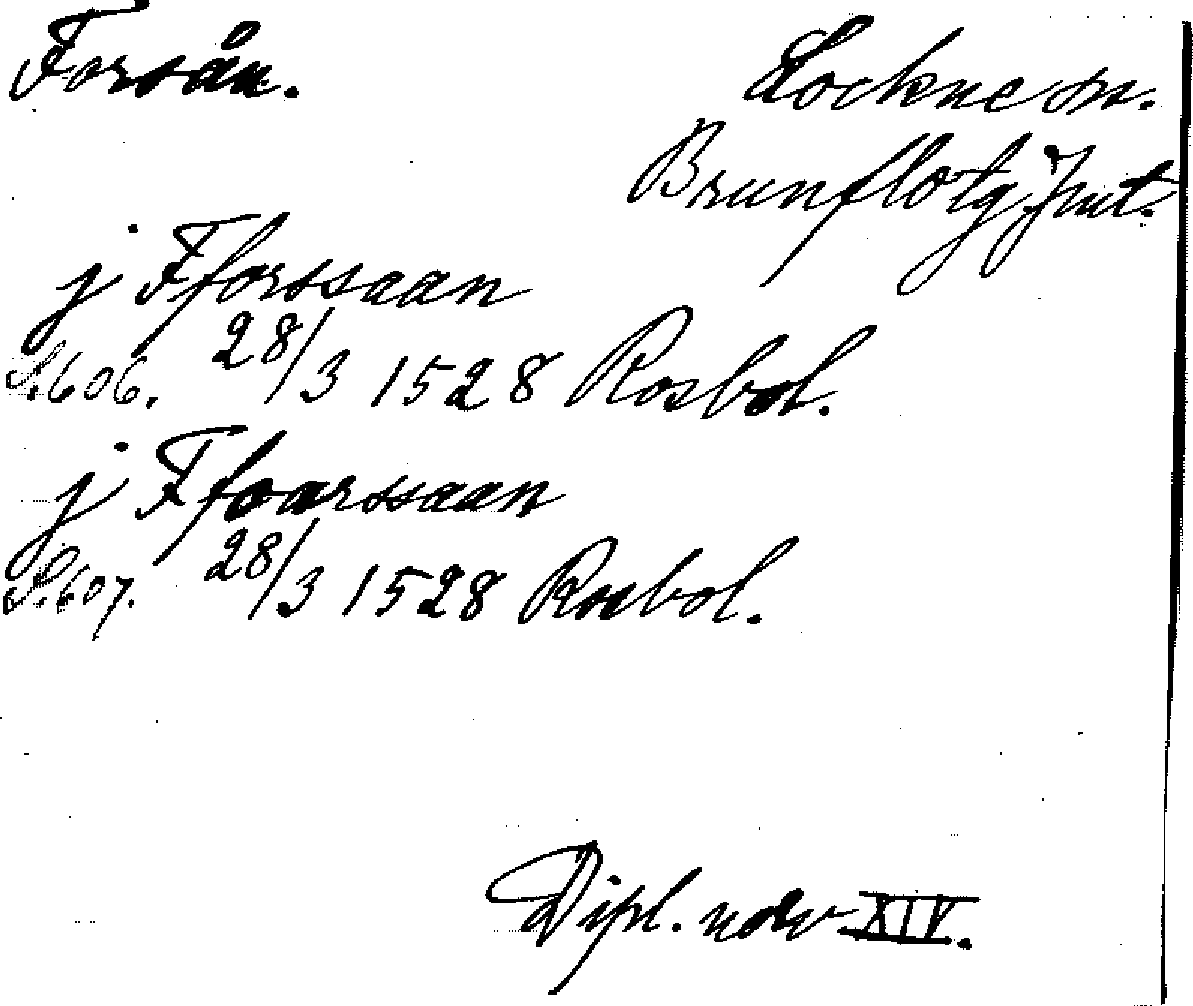 Forsån.
Lockne sn.
Brunflo tg. Jmt.
j Fforssaan
S. 606. 28/3 1528 Rosbol.
j Ffoarssaan
S. 607. 28/3 1528 Rosbol.
Dipl. norv XIV.